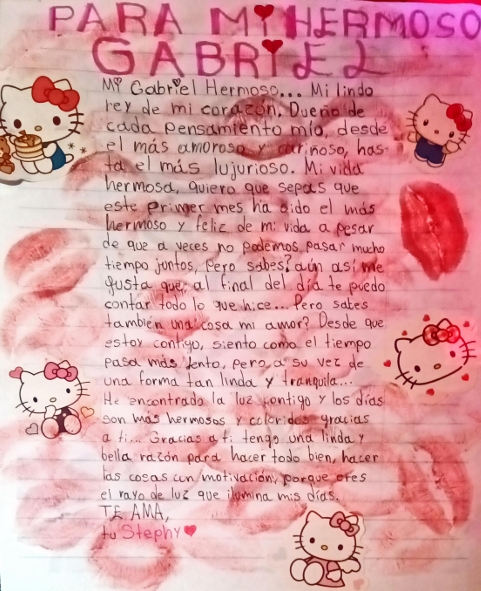 PARA Mi HERMOSO
GABRiEL
Mi Gabriel Hermoso... Mi lindo
rey de mi corazón. Dueño de
cada pensamiento mío, desde
el más amoroso y cariñoso, has-
ta el más lujurioso. Mi vida
hermosa, quiero que sepas que
este primer mes ha sido el más
hermoso y feliz de mi vida a pesar
de que a veces no podemos pasar mucho
tiempo juntos, pero sabes? aún así me
gusta que al final del día te puedo
contar todo lo que hice... Pero sabes
también una cosa mi amor? Desde que
estoy contigo, siento como el tiempo
pasa más lento, pero a su vez de
una forma tan linda y tranquila...
He encontrado la luz contigo y los días
son más hermosos y coloridos gracias
a ti... Gracias a ti tengo una linda y
bella razón para hacer todo bien, hacer
las cosas con motivación, porque eres
el rayo de luz que ilumina mis días.
TE AMA,
tu Stephy